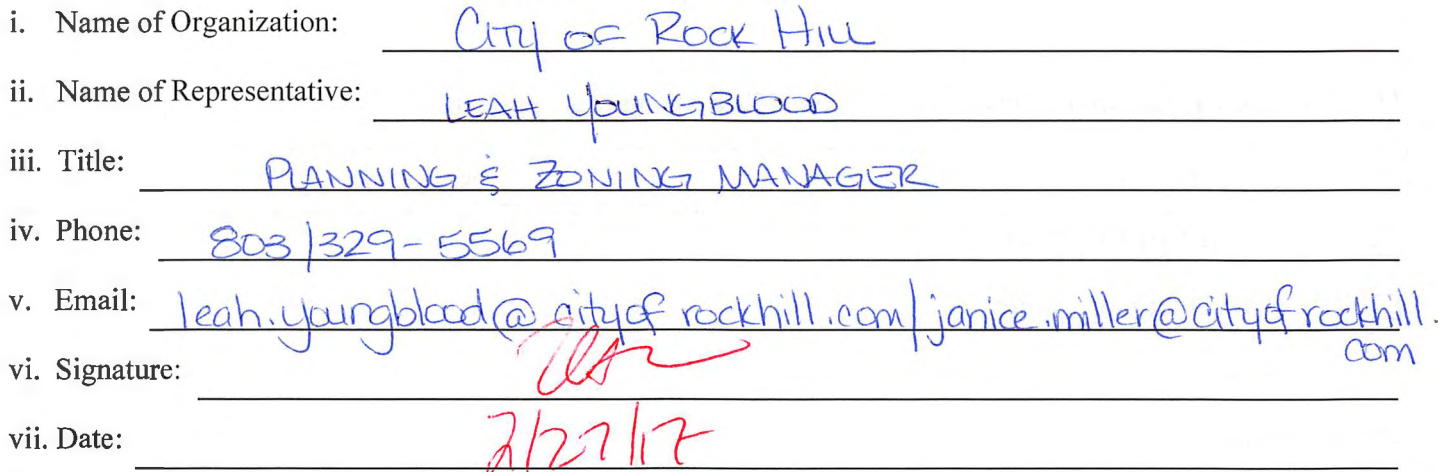 i. Name of Organization: CITY OF ROCK HILL
ii. Name of Representative: LEAH YOUNGBLOOD
iii. Title: PLANNING & ZONING MANAGER
iv. Phone: 803/329-5569
v. Email: leah.youngblood@cityofrockhill.com/janice.miller@cityofrockhill.
com
vi. Signature:
vii. Date: 2/27/17